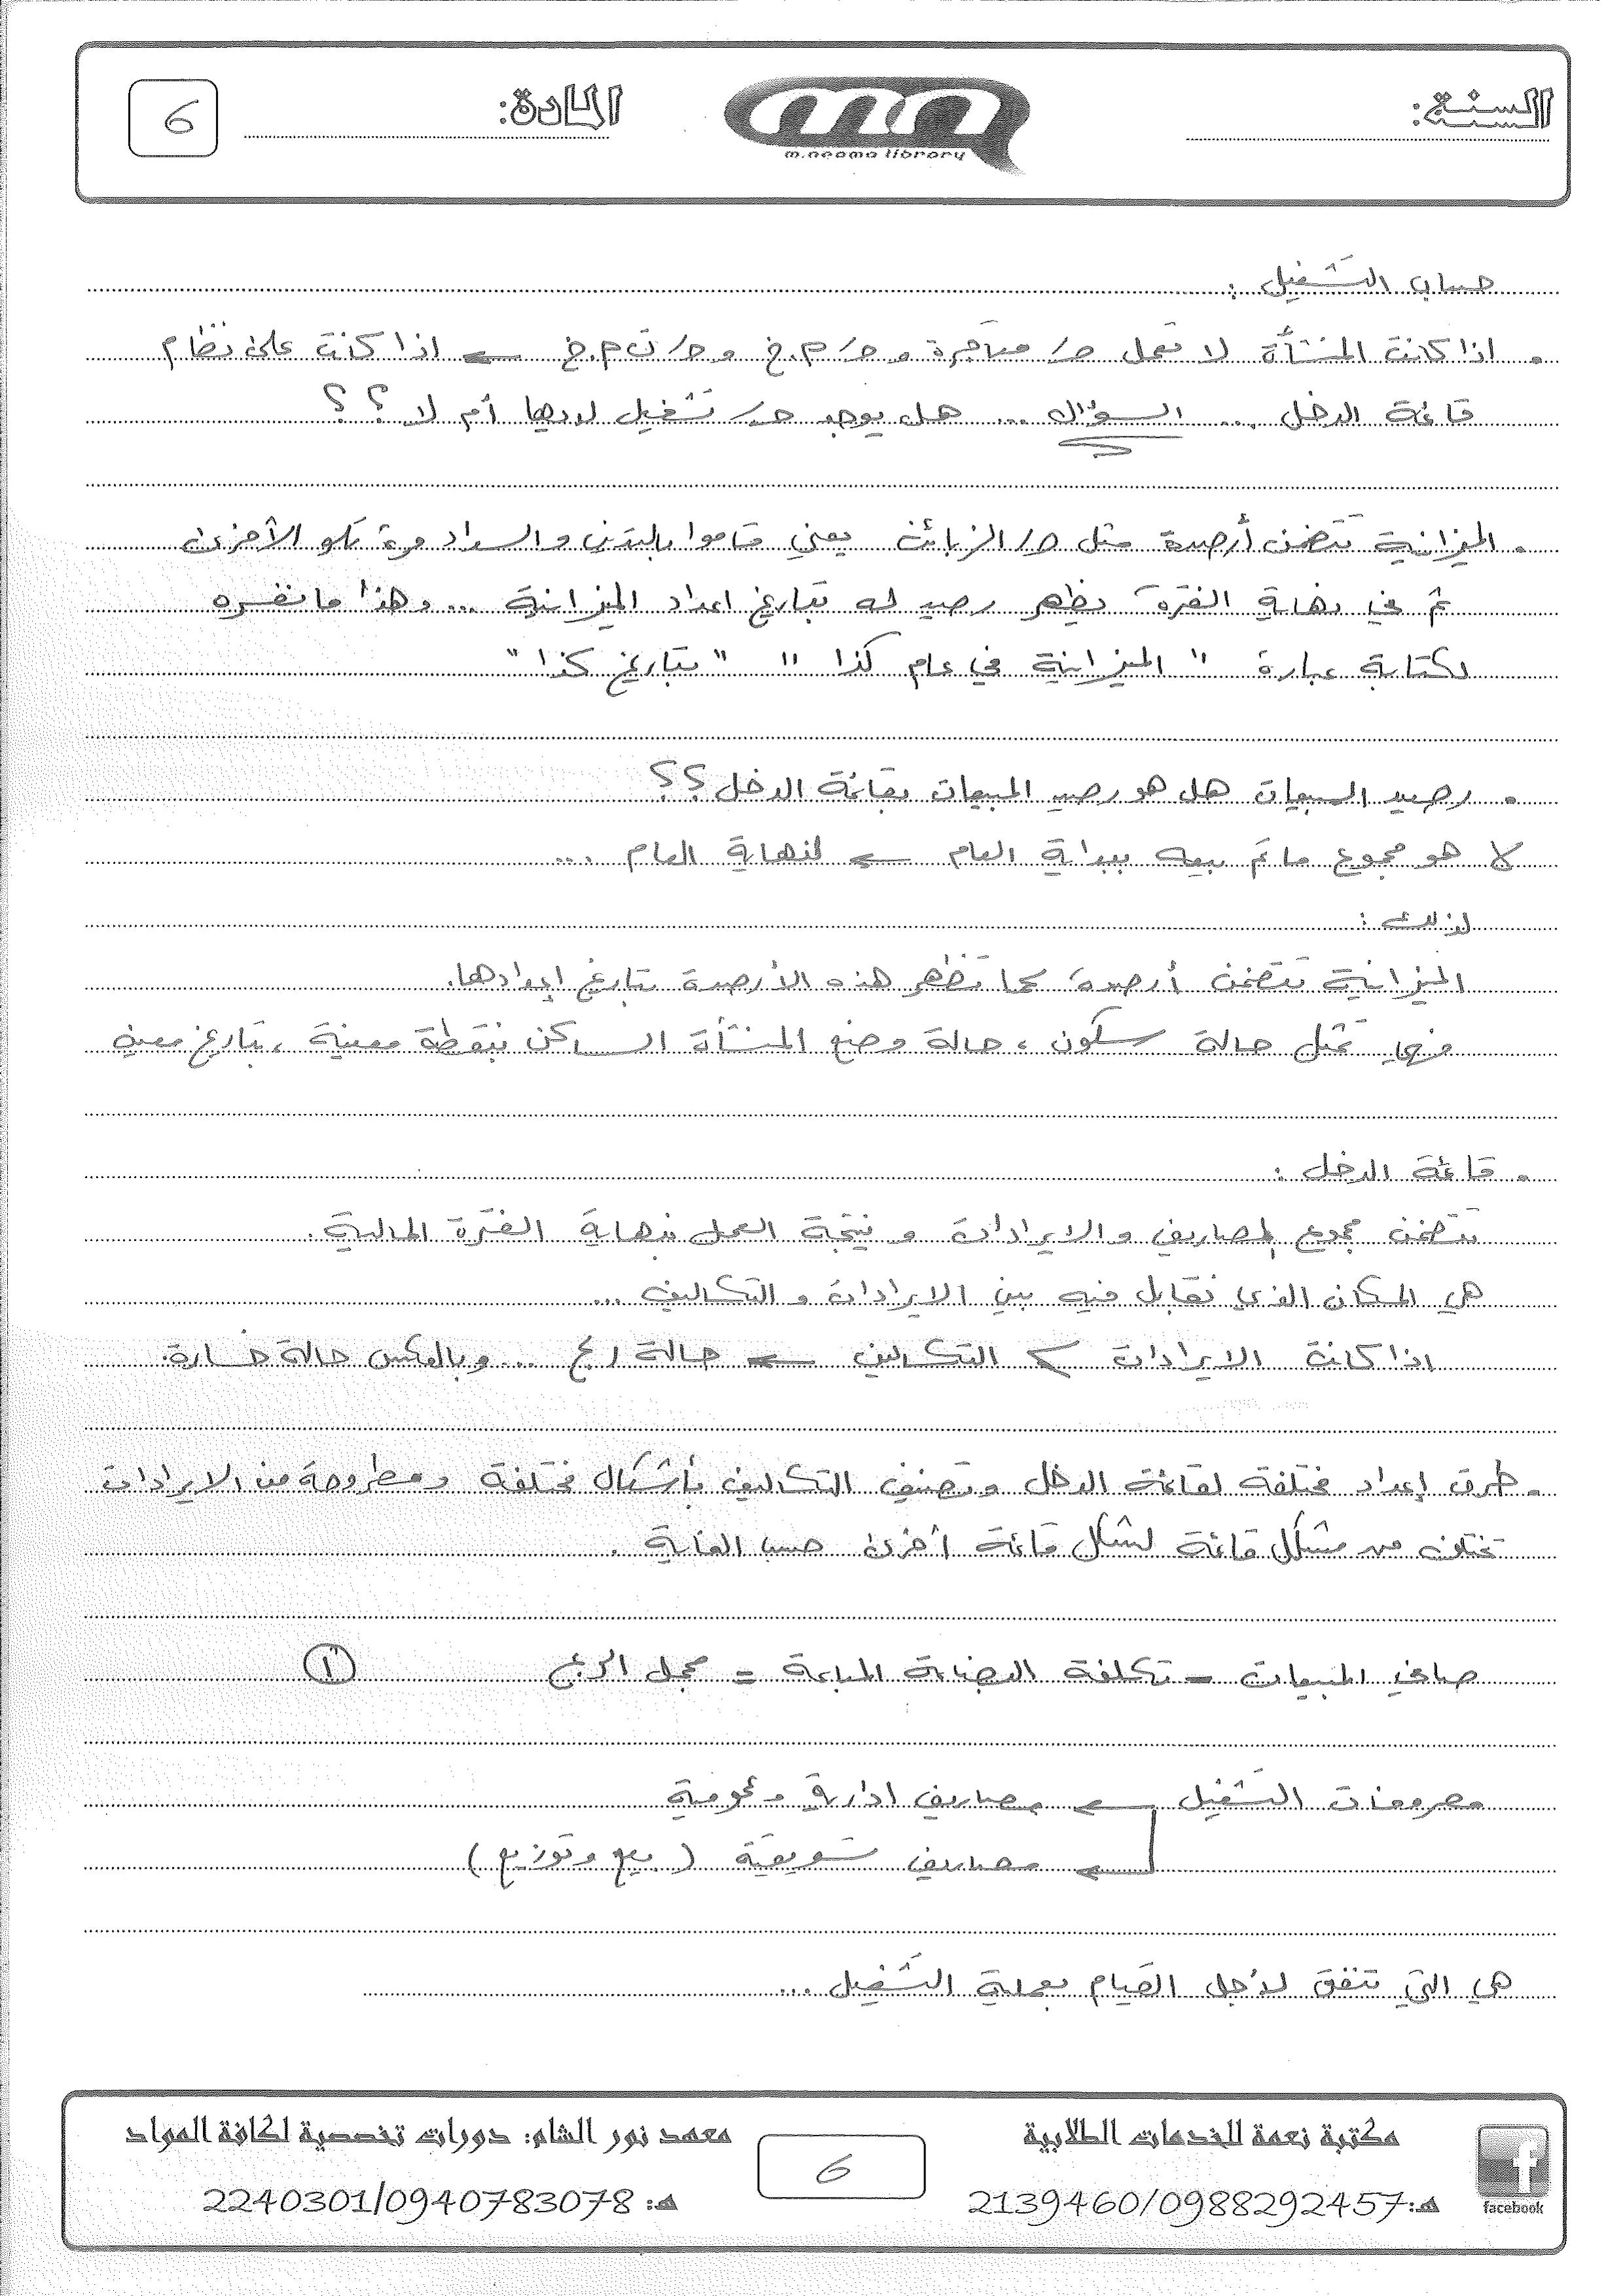 السنة:
m.neama library
المادة:
6
حساب التشغيل :
. اذا كانت المنشأة لا تعمل حـ/ متاجرة و حـ/ م.خ و حـ/ ت م.خ ← اذا كانت على نظام
قائمة الدخل ... السؤال ... هل يوجد حـ/ تشغيل لديها أم لا ؟؟
. الميزانية تتضمن أرصدة مثل حـ/ الزبائن يعني قاموا بالتدين والسداد مرة تلو الأخرى
ثم في نهاية الفترة يظهر رصيد له بتاريخ اعداد الميزانية ... وهذا ما نفسره
لكتابة عبارة " الميزانية في عام كذا " " بتاريخ كذا "
. رصيد المبيعات هل هو رصيد المبيعات بقائمة الدخل ؟؟
لا هو مجموع ما تم بيعه ببداية العام ← لنهاية العام ...
لذلك :
الميزانية تتضمن أرصدة كما تظهر هذه الأرصدة بتاريخ إعدادها.
فهي تمثل حالة سكون ، حالة وضع المنشأة الساكن بنقطة معينة ، بتاريخ معين
. قائمة الدخل :
تتضمن مجموع المصاريف والايرادات و نتيجة العمل بنهاية الفترة المالية .
هي المكان الذي نقابل فيه بين الايرادات و التكاليف ...
اذا كانت الايرادات > التكاليف ← حالة ربح ... وبالعكس حالة خسارة.
. طرق إعداد مختلفة لقائمة الدخل وتصنيف التكاليف بأشكال مختلفة ومطروحة من الايرادات
تختلف من شكل قائمة لشكل قائمة أخرى حسب الغاية .
صافي المبيعات - تكلفة البضاعة المباعة = مجمل الربح ①
مصروفات التشغيل ← مصاريف ادارية وعمومية
← مصاريف تسويقية ( بيع وتوزيع )
هي التي تنفق لأجل القيام بعملية التشغيل ...
مكتبة نعمة للخدمات الطلابية
هـ: 2139460/0988292457
facebook
6
معهد نور الشام: دورات تخصصية لكافة المواد
هـ: 2240301/0940783078